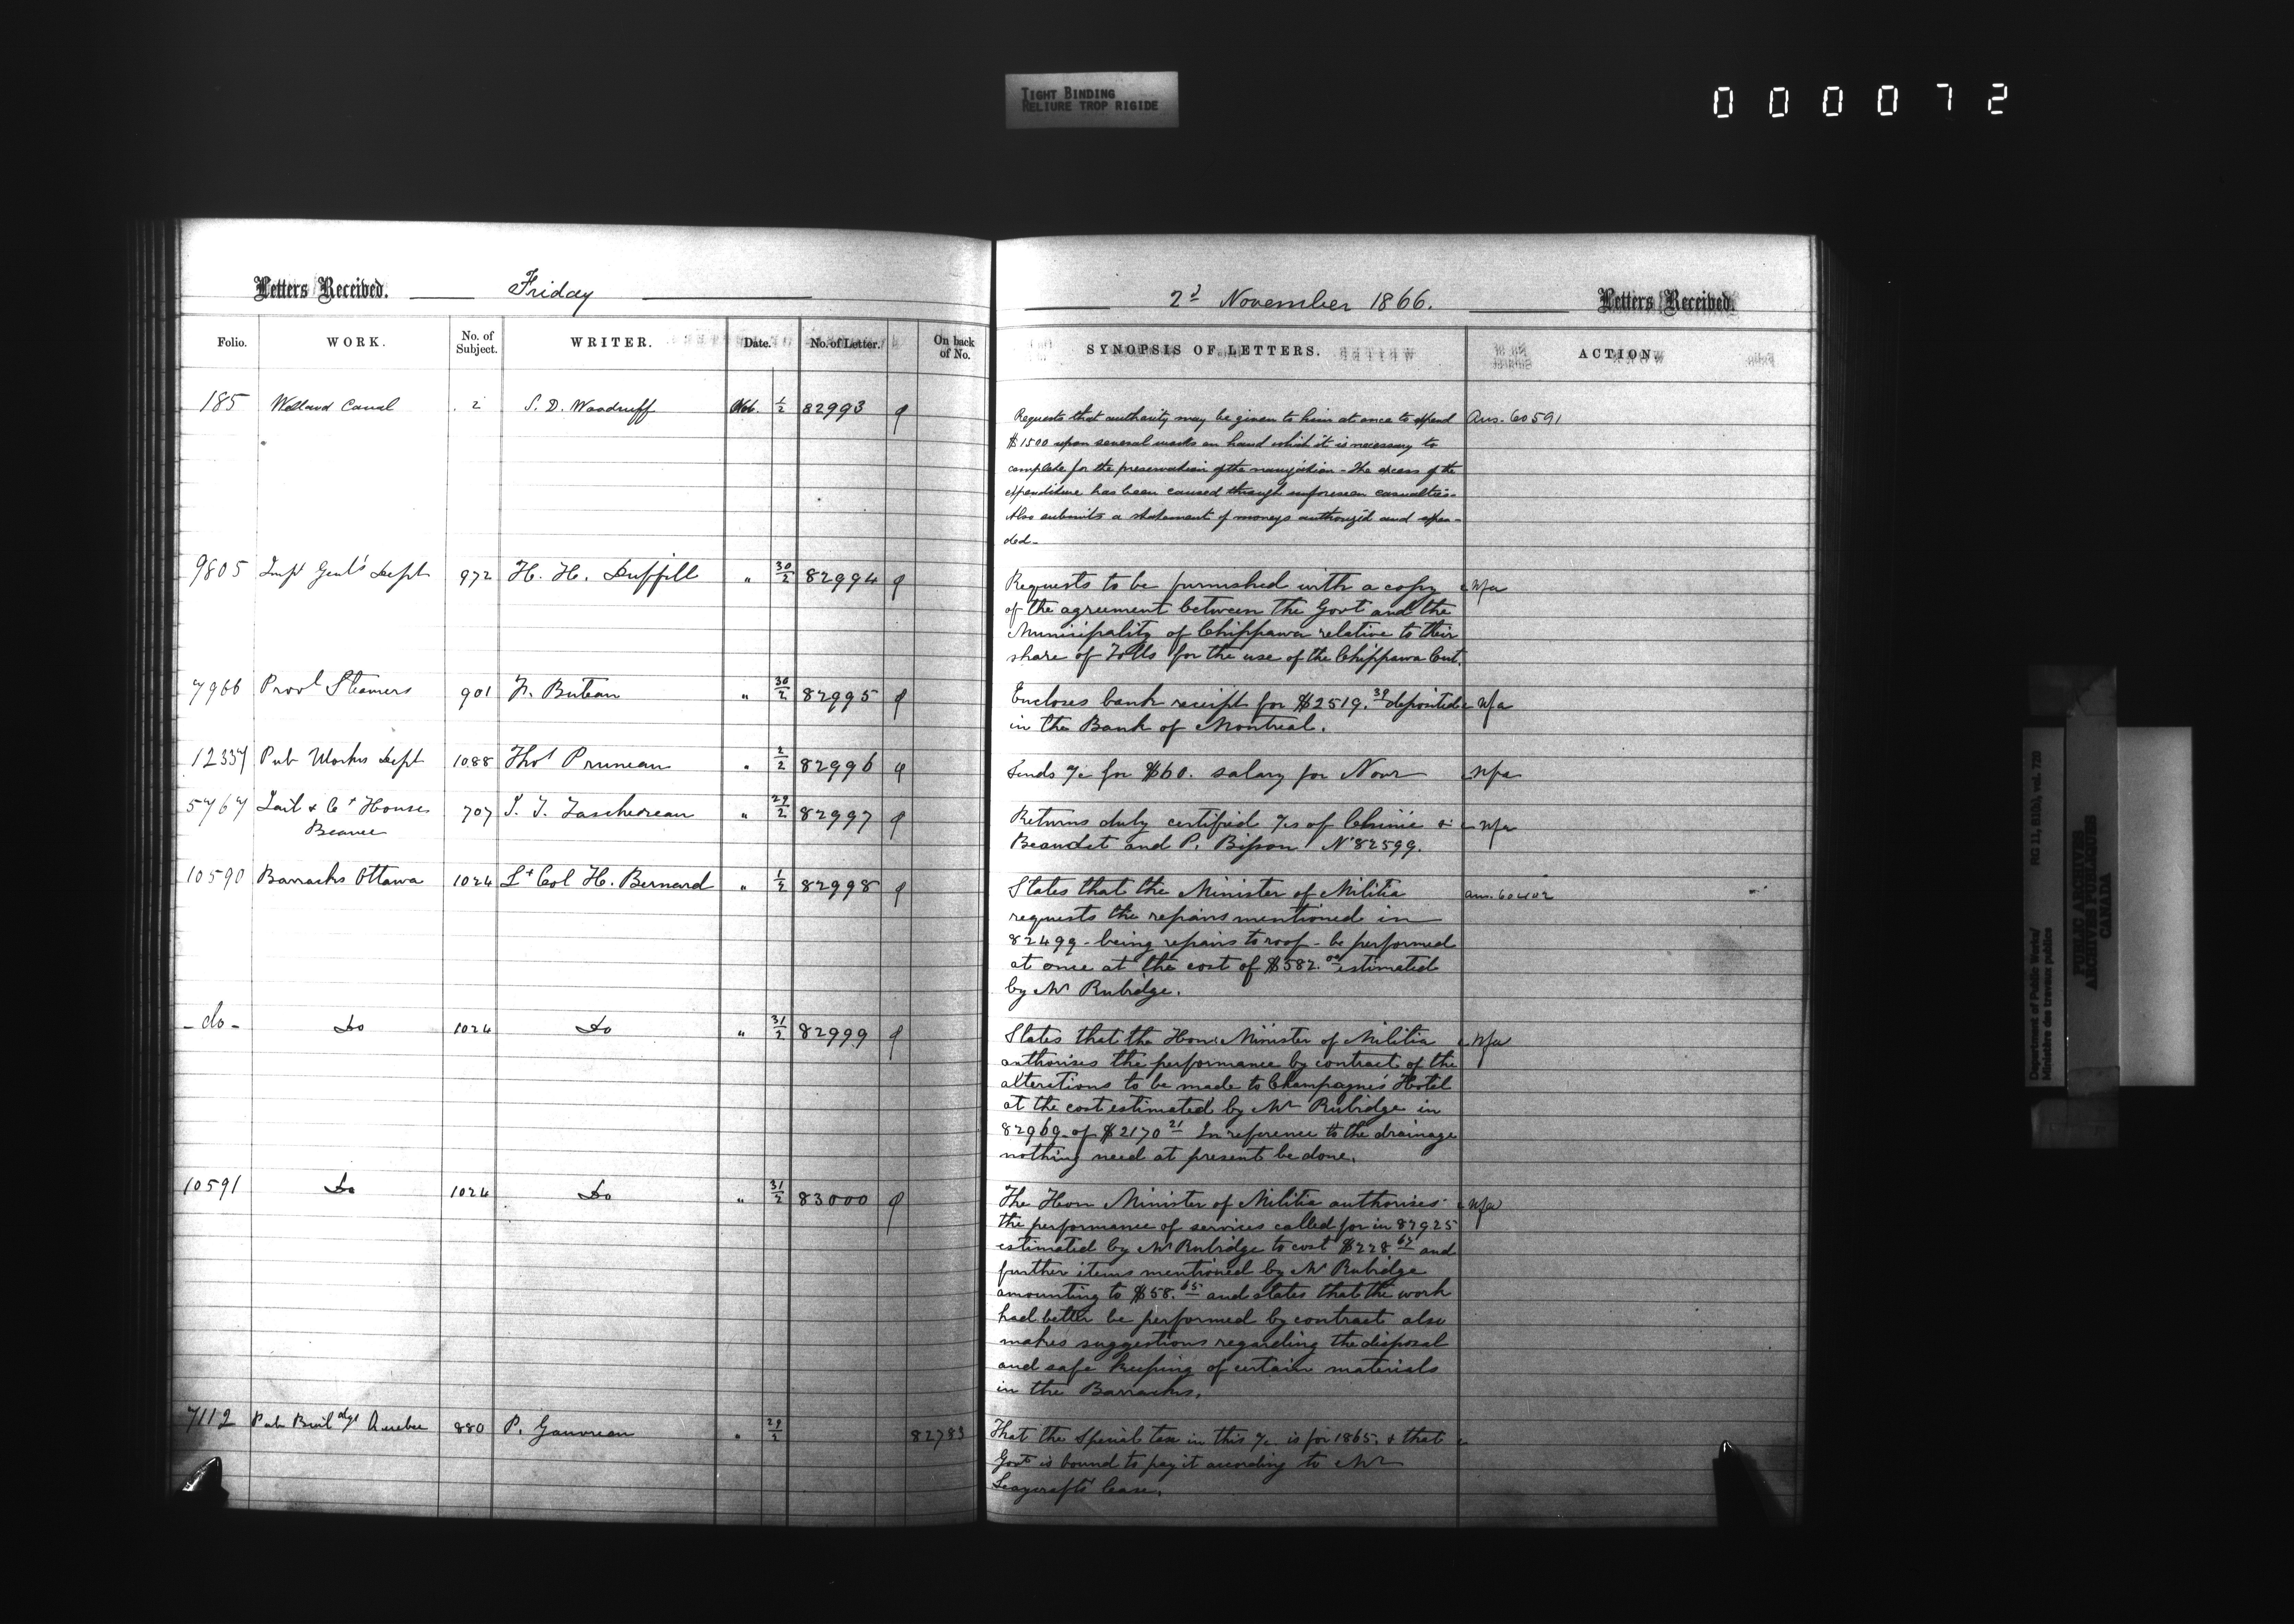 TIGHT BINDING
RELIURE TROP RIGIDE
0 0 0 0 0 7 2
Letters Received. Friday
Folio. WORK. No. of Subject. WRITER. Date. No. of Letter. On back of No.
185 Welland Canal 2 S. D. Woodruff Nov. 1/2 82993
9805 Inspr Genl's Dept 972 H. H. Duffill " 30/2 82994
7966 Provl Steamers 901 N. Buteau " 30/2 82995
12337 Pub Works Dept 1088 Thos Pruneau " 2/2 82996
5767 Jail & Ct Houses 707 T. J. Taschereau " 29/2 82997
Beauce
10590 Barracks Ottawa 1024 Lt Col H. Bernard " 1/2 82998
- do - Do 1024 Do " 31/2 82999
10591 Do 1024 Do " 31/2 83000
7112 Pub Buildgs Quebec 880 P. Gauvreau " 29/2 82783
2d November 1866. Letters Received.
SYNOPSIS OF LETTERS. ACTION.
Requests that authority may be given to him at once to expend Ans. 60591
$1500 upon several works on hand which it is necessary to
complete for the preservation of the navigation - The excess of the
expenditure has been caused through unforeseen casualties.
Also submits a statement of moneys authorized and expen-
ded -
Requests to be furnished with a copy Nfa
of the agreement between the Govt and the
Municipality of Chippawa relative to their
share of Tolls for the use of the Chippawa Cut.
Encloses bank receipt for $2519.39 deposited Nfa
in the Bank of Montreal.
Sends a/c for $60. salary for Novr Nfa
Returns duly certified a/cs of Chinic & Nfa
Beaudet and P. Bisson No 82599.
States that the Minister of Militia ans. 60402
requests the repairs mentioned in
82499 - being repairs to roof - be performed
at once at the cost of $582.00 estimated
by Mr Rubidge.
States that the Hon. Minister of Militia Nfa
authorises the performance by contract of the
alterations to be made to Champagne's Hotel
at the cost estimated by Mr Rubidge in
82969 of $2170 21 In reference to the drainage
nothing need at present be done.
The Hon Minister of Militia authorises Nfa
the performance of services called for in 82925
estimated by Mr Rubidge to cost $228 62 and
further items mentioned by Mr Rubidge
amounting to $58.65 and states that the work
had better be performed by contract also
makes suggestions regarding the disposal
and safe keeping of certain materials
in the Barracks.
That the Special tax in this a/c is for 1865. & that
Govt is bound to pay it according to Mr
Leaycraft's lease.
Department of Public Works/ RG 11, B1(b), vol. 720
Ministère des travaux publics
PUBLIC ARCHIVES
ARCHIVES PUBLIQUES
CANADA